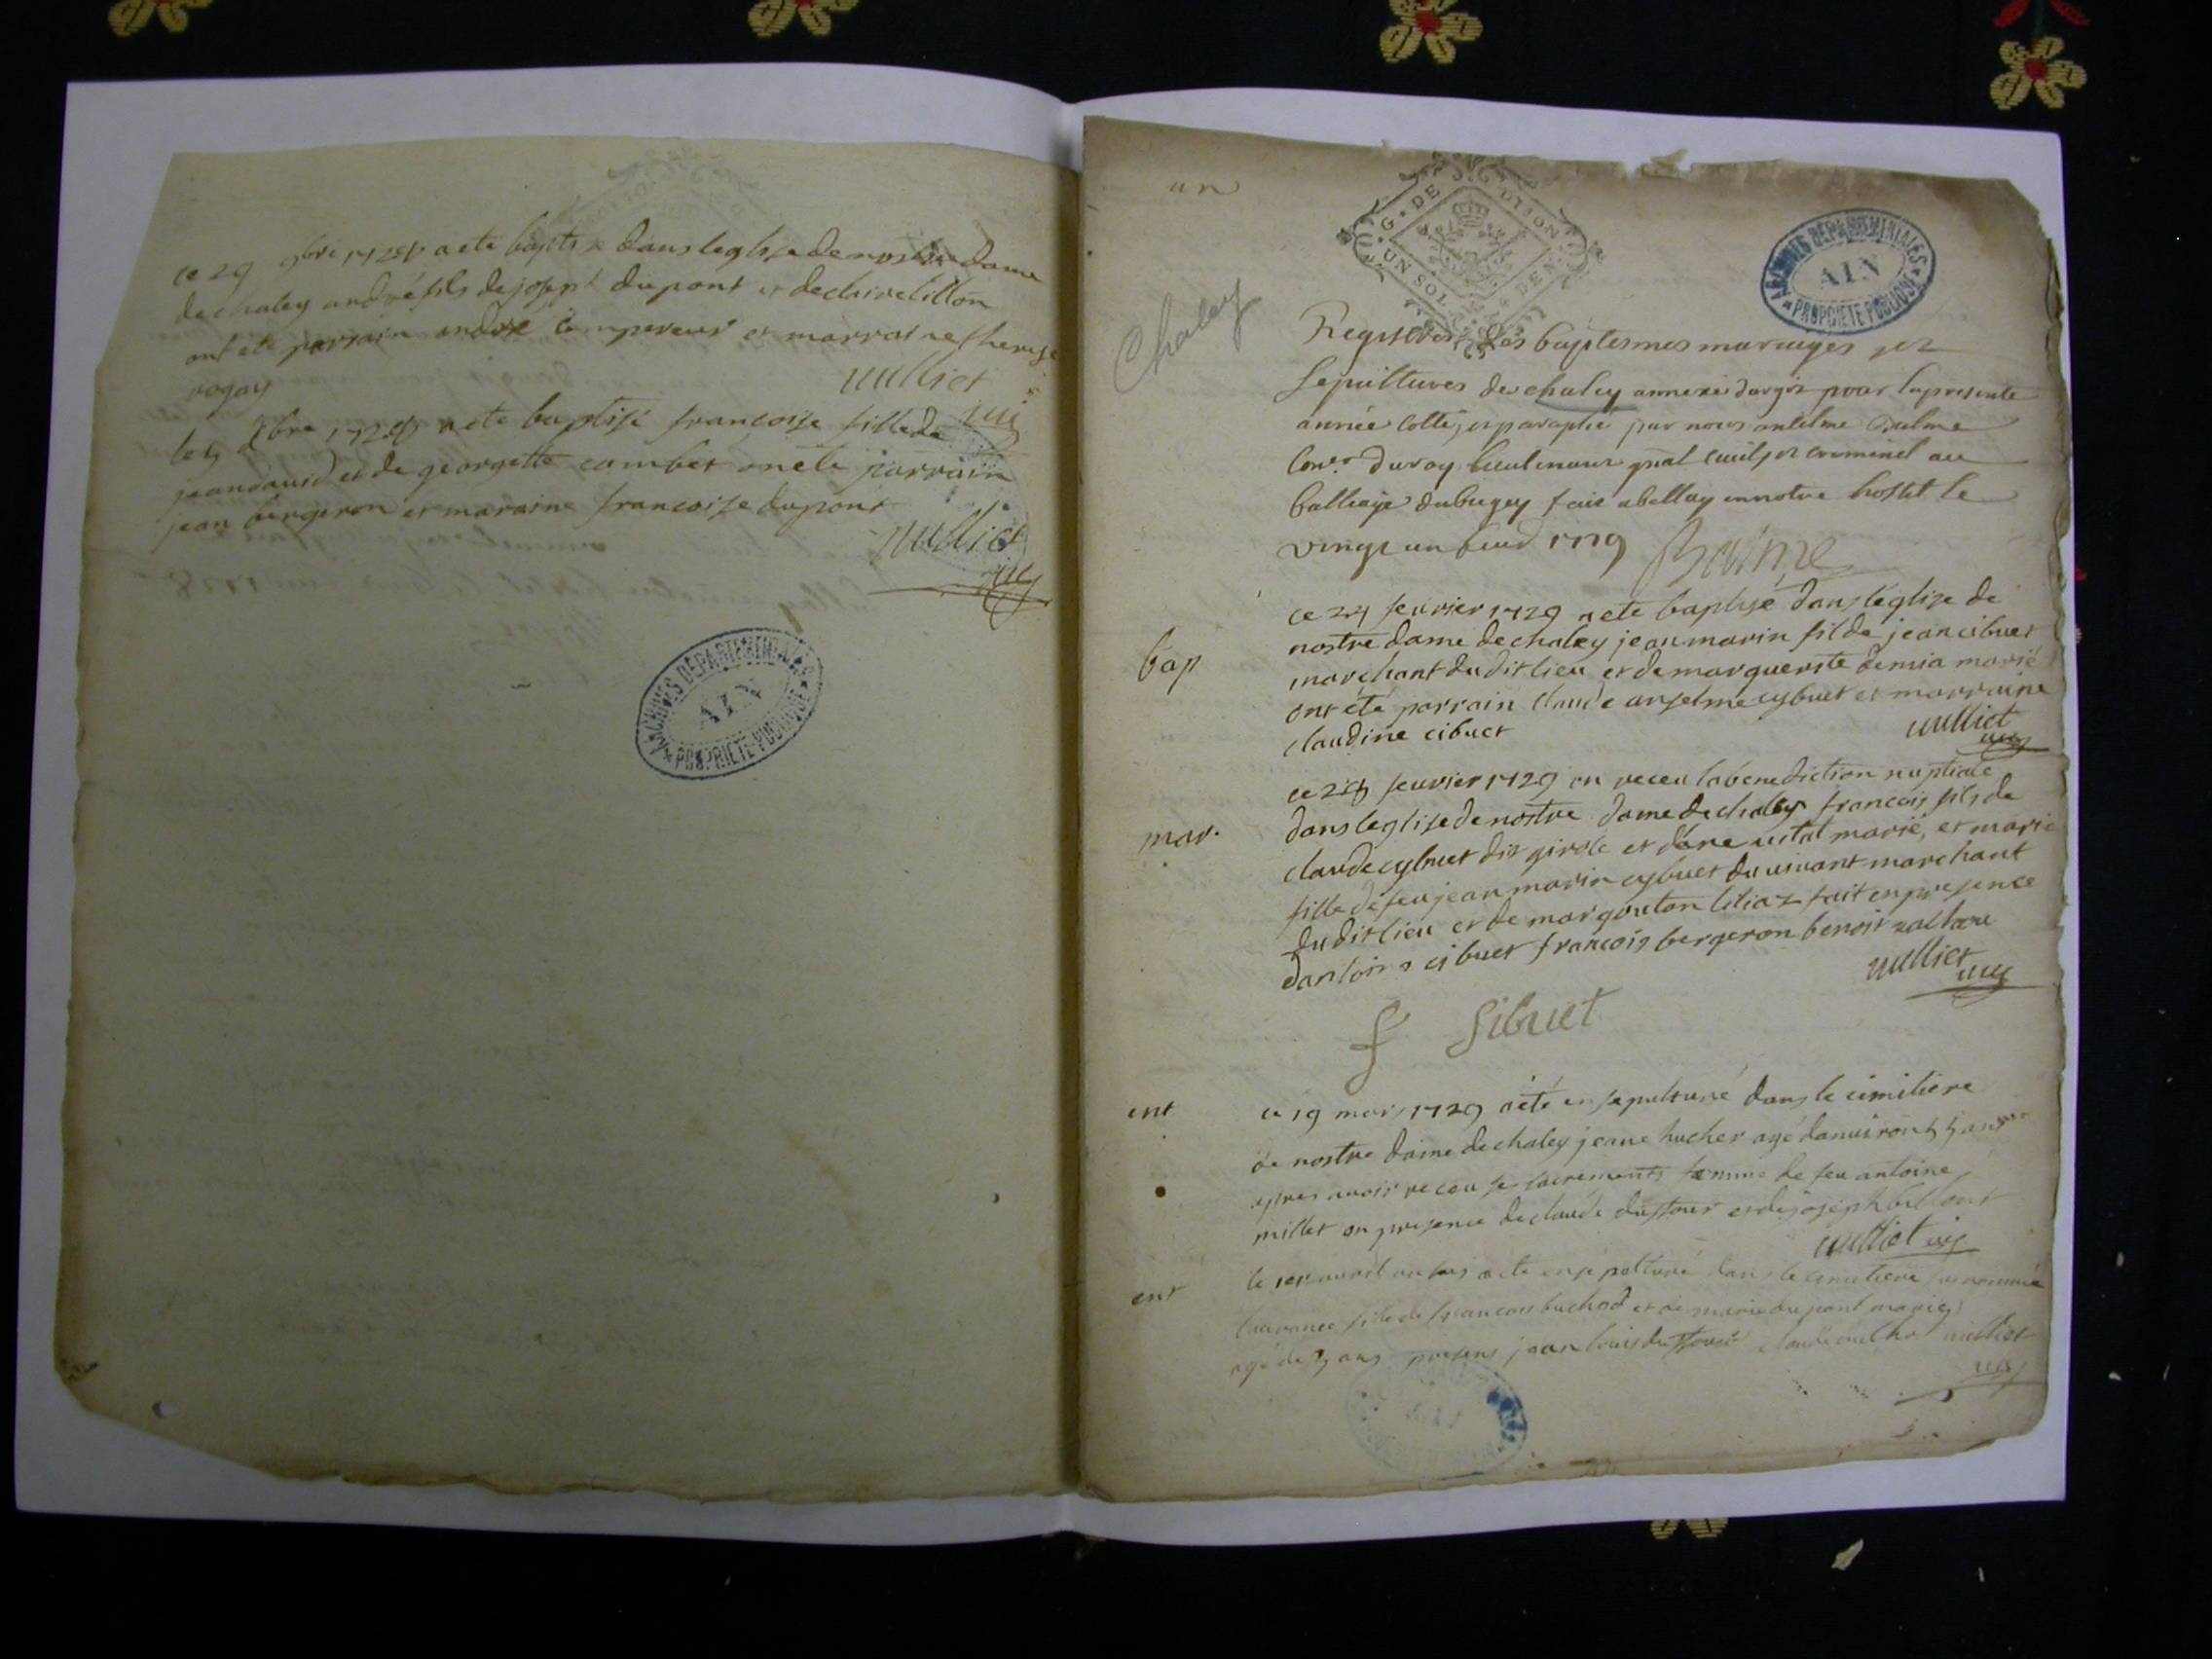 ce 29 9bre 1728 a eté baptisé dans leglise de nostre dame
de chaley andré fils de joseph dupont et de claire lillon
ont eté parrain andre et marraine therese
rogay
vulliet
cure
le 9bre 1728 a eté baptisé francoise fille de
jean david et de georgette combet ont eté parrain
jean bergeron et maraine francoise dupont
vulliet
cure
ARCHIVES DEPARTEMENTALES
AIN
PROPRIETE PUBLIQUE
un
G. DE DIJON
UN SOL DEN
ARCHIVES DEPARTEMENTALES
AIN
PROPRIETE PUBLIQUE
Chaley
Registre des baptesmes mariages et
sepultures de chaley annexe dargis pour la presente
année cotté et paraphé par nous antelme balme
Coner du roy lieutenant gnal civil et criminel au
balliage du bugey fait a bellay en notre hostel le
vingt un 1729 Balme
bap
ce 24 fevrier 1729 a eté baptisé dans leglise de
nostre dame de chaley jean marin fil de jean cibuet
marchant dudit lieu et de marguerite demia marié
ont été parrain claude anselme cybuet et marraine
claudine cibuet
vulliet
cure
mar.
ce 28 feuvrier 1729 on receu la benediction nuptiale
dans leglise de nostre dame de chaley francois fils de
claude cybuet dit girole et danne vital marié, et marie
fille de feu jean marin cybuet du vivant marchant
dudit lieu et de margoton liliaz fait en presence
dantoine cibuet francois bergeron benoit
vulliet
cure
f Sibuet
ent
ce 19 mars 1729 a eté ensepulturé dans le cimitiere
de nostre dame de chaley jeane hucher agé danviron
apres avoir receu se sacrements femme de feu antoine
millet en presence de claude dufour et de joseph
vulliet cure
ent
le avril a eté ensepolturé dans le cimetiere surnommé
laurance fille de francois buchod et de marie dupont mariés
agé de ans presens jean louis dufour claude vulliet
cure